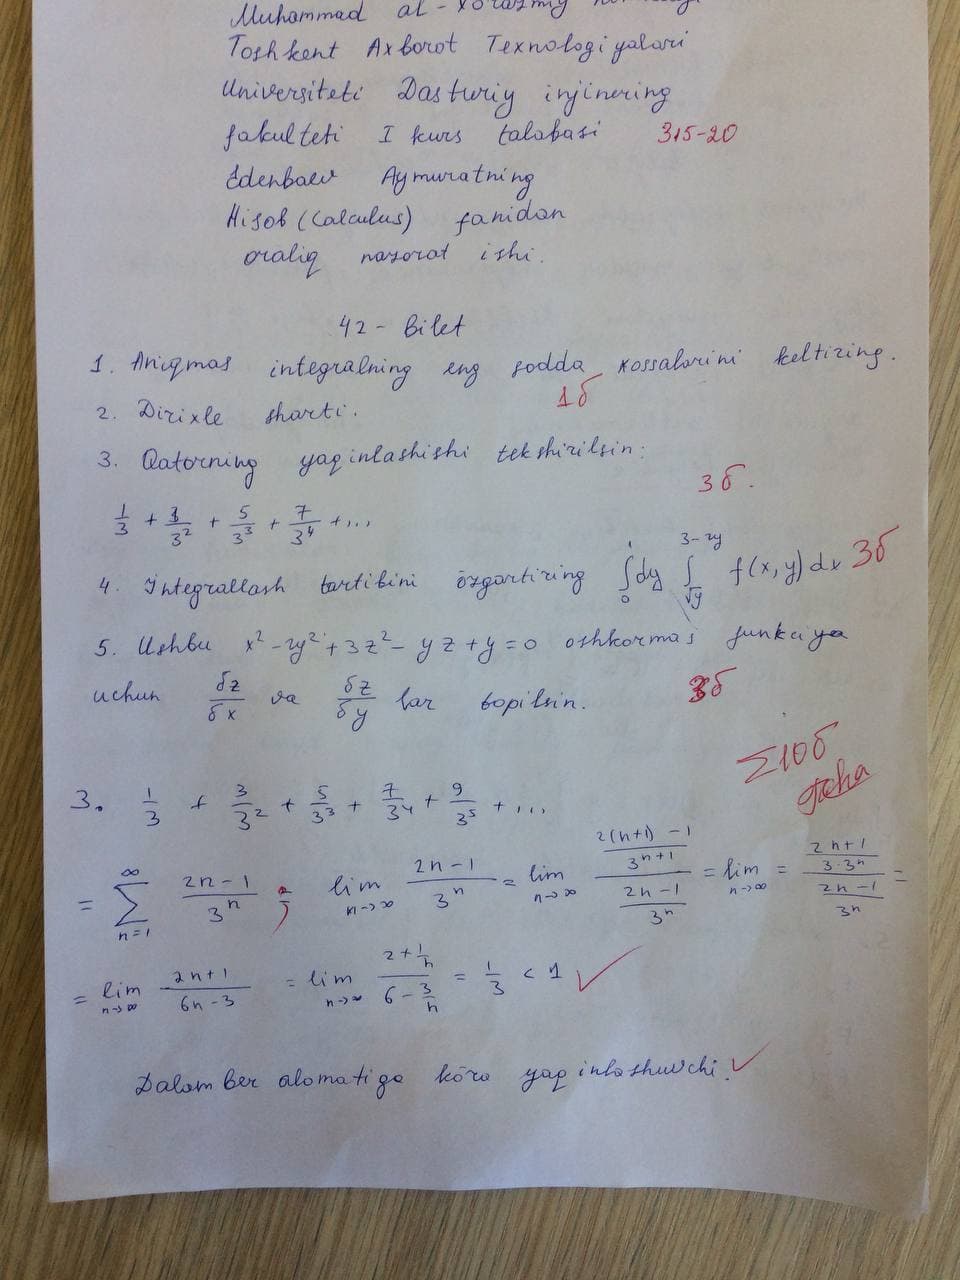 Muhammad al-Xorazmiy
Toshkent Axborot Texnologiyalari
Universiteti Dasturiy injinering
fakulteti I kurs talabasi 315-20
Edenbaev Aymuratning
Hisob (Calculus) fanidan
oraliq nazorat ishi.
42 - Bilet
1. Aniqmas integralning eng sodda xossalarini keltiring.
1б
2. Dirixle sharti.
3. Qatorning yaqinlashishi tekshirilsin:
3б.
1/3 + 3/3² + 5/3³ + 7/3⁴ + ...
4. Integrallash tartibini özgartiring ∫₀¹ dy ∫_{√y}^{3-2y} f(x,y) dx 3б
5. Ushbu x² - 2y² + 3z² - yz + y = 0 oshkormas funkciya
uchun δz/δx va δz/δy lar topilsin. 3б
Σ10б
3. 1/3 + 3/3² + 5/3³ + 7/3⁴ + 9/3⁵ + ...
= ∑_{n=1}^{∞} (2n-1)/3ⁿ ; lim_{n→∞} (2n-1)/3ⁿ = lim_{n→∞} ((2(n+1)-1)/3ⁿ⁺¹)/((2n-1)/3ⁿ) = lim_{n→∞} = ((2n+1)/(3·3ⁿ))/((2n-1)/3ⁿ) =
= lim_{n→∞} (2n+1)/(6n-3) = lim_{n→∞} (2+1/n)/(6-3/n) = 1/3 < 1 ✓
Dalamber alomatiga köra yaqinlashuvchi. ✓